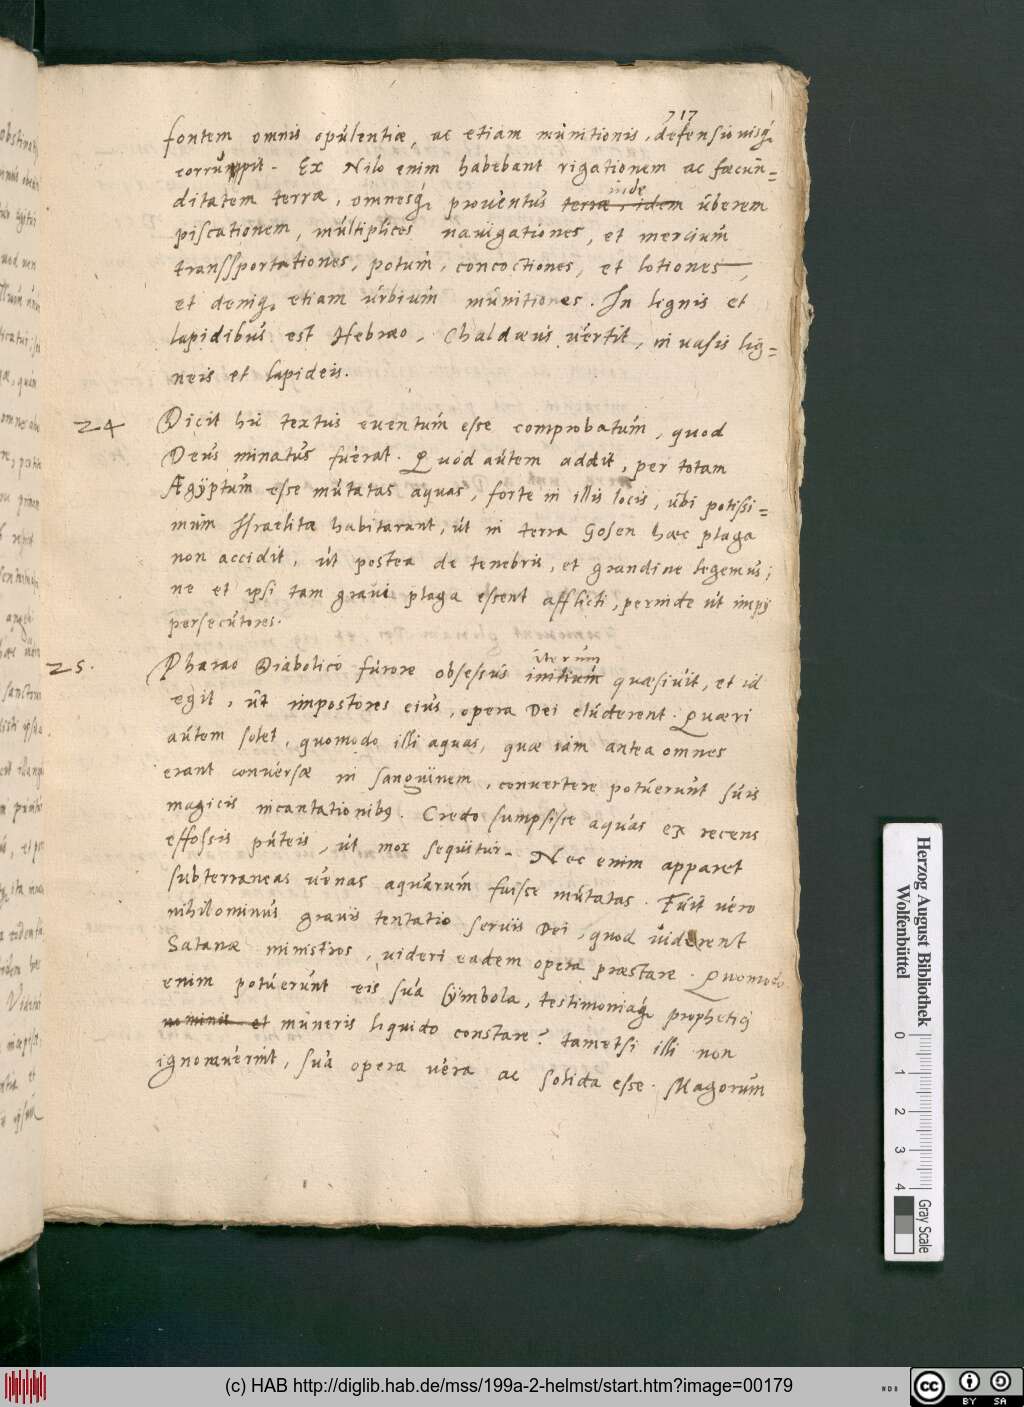 717
fontem omnis opulentiæ, ac etiam munitionis, defensionisq́₃
corrumpit. Ex Nilo enim habebant rigationem ac fœcun=
ditatem terræ, omnesq́₃ prouentus terræ, idem inde úberem
piscationem, múltiplices nauigationes, et mercium
transsportationes, potum, concoctiones, et lotiones,
et deniq₃ etiam úrbium munitiones. In lignis et
lapidibus est Hebræo, Chaldæus uertit, in uasis lig=
neis et lapideis.
24 Dicit hic textus euentum esse comprobatum, quod
Deus minatus fuerat. Quod autem addit, per totam
Ægÿptum esse mutatas aquas, forte in illis locis, ubi potissi=
mum Israelitæ habitarunt, ut in terra Gosen hæc plaga
non accidit, ut postea de tenebris, et grandine legemus;
ne et ipsi tam graui plaga essent afflicti, perinde ut impij
persecutores.
25. Pharao Diabolico furore obsessus initium iterum quæsiuit, et id
egit, ut impostores eius, opera Dei eluderent. Quæri
autem solet, quomodo illi aquas, quæ iam antea omnes
erant conuersæ in sanguinem, conuertere potuerunt suis
magicis incantationibus. Credo sumpsisse aquas ex recens
effossis puteis, ut mox sequitur. Nec enim apparet
subterraneas uenas aquarum fuisse mutatas. Fuit uero
nihilominus grauis tentatio seruis Dei, quod uiderent
Satanæ ministros, uideri eadem opera præstare. Quomodo
enim potuerunt eis sua sÿmbola, testimoniaq́₃ prophetici
nominis et muneris liquido constare? tametsi illi non
ignorauerint, sua opera uera ac solida esse. Magorum
Herzog August Bibliothek
Wolfenbüttel
0 1 2 3 4
Gray Scale
(c) HAB http://diglib.hab.de/mss/199a-2-helmst/start.htm?image=00179
cc BY SA